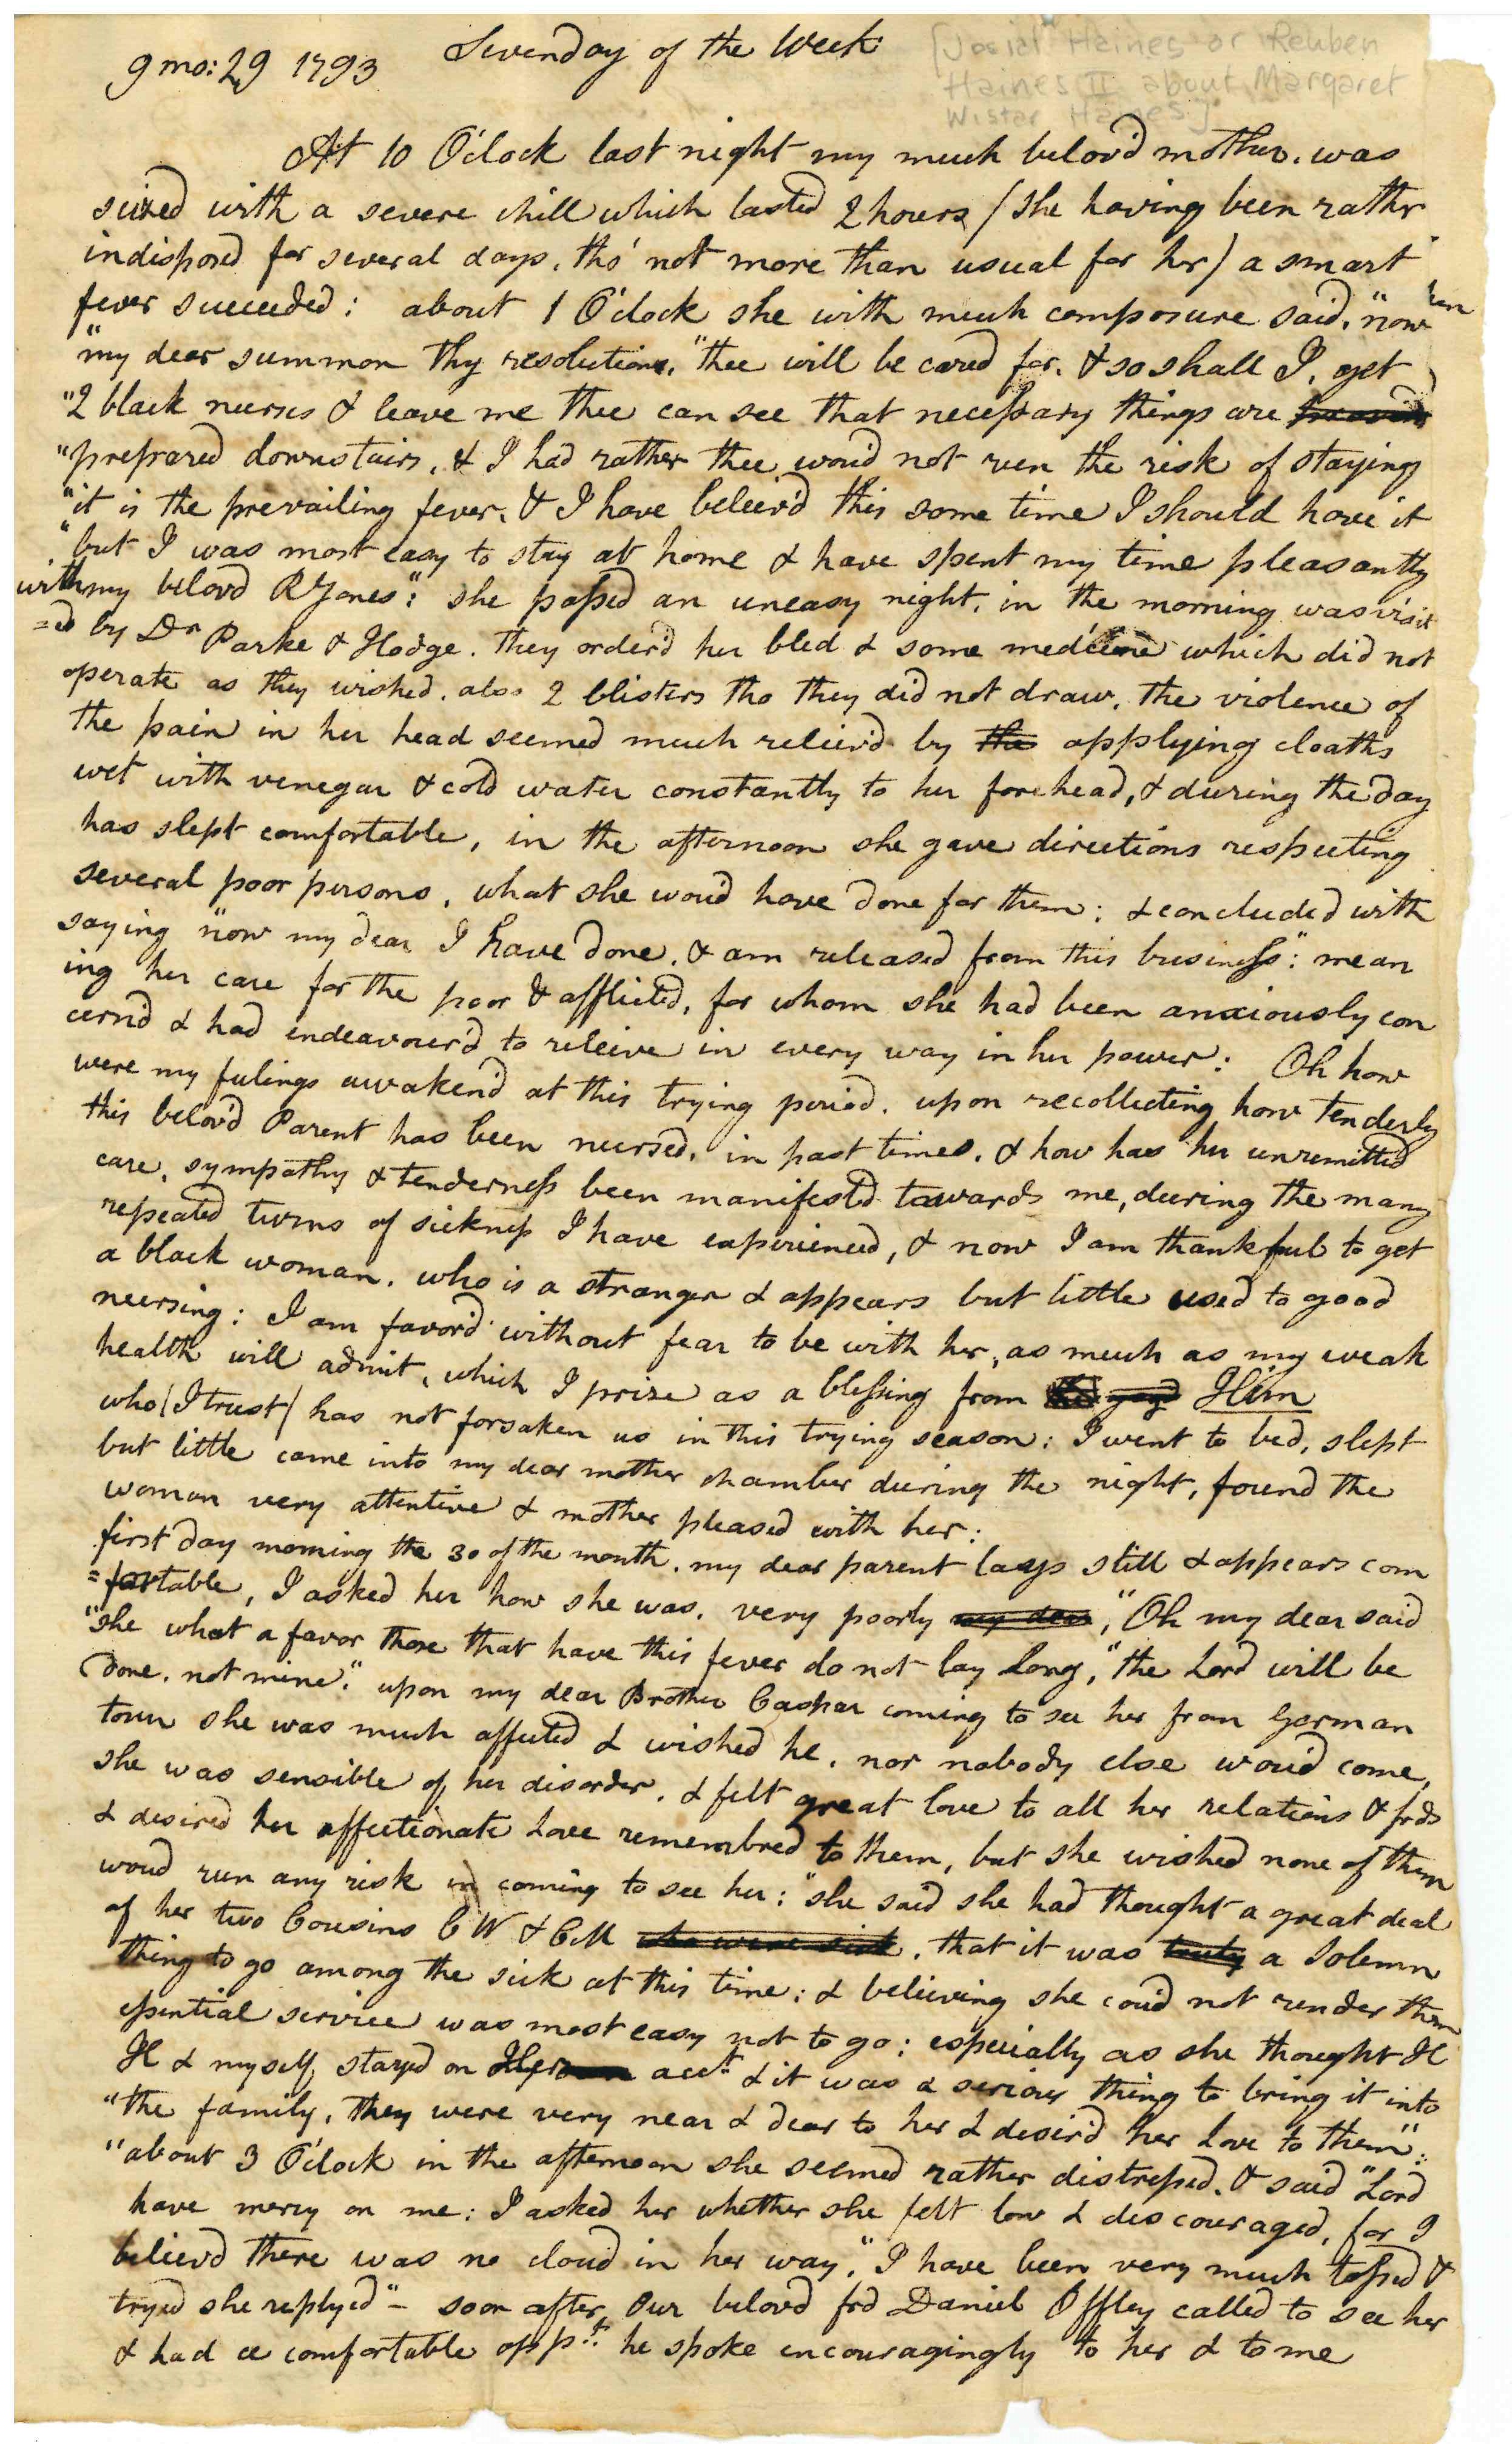 9 mo: 29 1793 Sevenday of the Week
[Josiah Haines or Reuben
Haines II about Margaret
Wistar Haines]
At 10 O'Clock last night my much belov'd mother, was
seized with a severe chill which lasted 2 hours (she having been rather
indisposed for several days, tho' not more than usual for her) a smart
fever succeeded: about 1 O'Clock she with much composure said, "now
"my dear summon thy resolution, "thee will be cared for, & so shall I, get
"2 black nurses & leave me thee can see that necessary things are
"prepared downstairs, & I had rather thee wou'd not run the risk of staying
"it is the prevailing fever, & I have beleiv'd this some time I should have it
"but I was most easy to stay at home & have spent my time pleasantly
with my belov'd R Jones": she passed an uneasy night, in the morning was visit
=ed by Dr Parke & Hodge. they order'd her bled & some medicine which did not
operate as they wished, also 2 blisters tho they did not draw, the violence of
the pain in her head seemed much reliev'd by the applying cloaths
wet with venegar & cold water constantly to her forehead, & during the day
has slept comfortable, in the afternoon she gave directions respecting
several poor persons, what she wou'd have done for them; & concluded with
saying "now my dear I have done, & am released from this business": mean
ing her care for the poor & afflicted, for whom she had been anxiously con
cern'd & had endeavour'd to releive in every way in her power: Oh how
were my feelings awaken'd at this trying period, upon recollecting how tenderly
this belov'd Parent has been nursed, in past times, & how has her unremitted
care, sympathy & tenderness been manifest'd towards me, during the many
repeated turns of sickness I have experienced, & now I am thankful to get
a black woman, who is a stranger & appears but little used to good
nursing: I am favor'd without fear to be with her, as much as my weak
health will admit, which I prize as a blessing from Him
who (I trust) has not forsaken us in this trying season: I went to bed, slept
but little came into my dear mother chamber during the night, found the
woman very attentive & mother pleased with her:
first day morning the 30 of the month, my dear parent lays still & appears com
=fortable, I asked her how she was, very poorly my dear, "Oh my dear said
"she what a favor those that have this fever do not lay long, "the Lord will be
done, not mine": upon my dear Brother Caspar coming to see her from German
town she was much affected & wished he, nor nobody else wou'd come,
she was sensible of her disorder, & felt great love to all her relations & frds
& desired her affectionate Love remembred to them, but she wished none of them
woud run any risk in coming to see her: "she said she had thought a great deal
of her two Cousins C W & C M who were sick, that it was truly a Solemn
thing to go among the sick at this time; & believing she cou'd not render them
essential service was most easy not to go; especially as she thought H
H & myself, stayed on Her acct. & it was a serious thing to bring it into
"the family, they were very near & dear to her & desir'd her Love to them":
"about 3 O'Clock in the afternoon she seemed rather distressed, & said "Lord
have mercy on me: I asked her whether she felt low & discouraged, for I
believ'd there was no cloud in her way, "I have been very much tossed &
tryed she replyed" - soon after, Our belov'd frd Daniel Offley called to see her
& had a comfortable oppt. he spoke encouragingly to her & to me